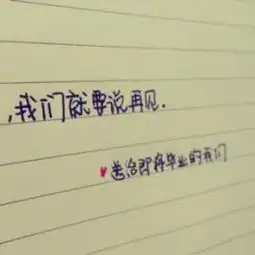 ,我们就要说再见.
♥送给即将毕业的我们